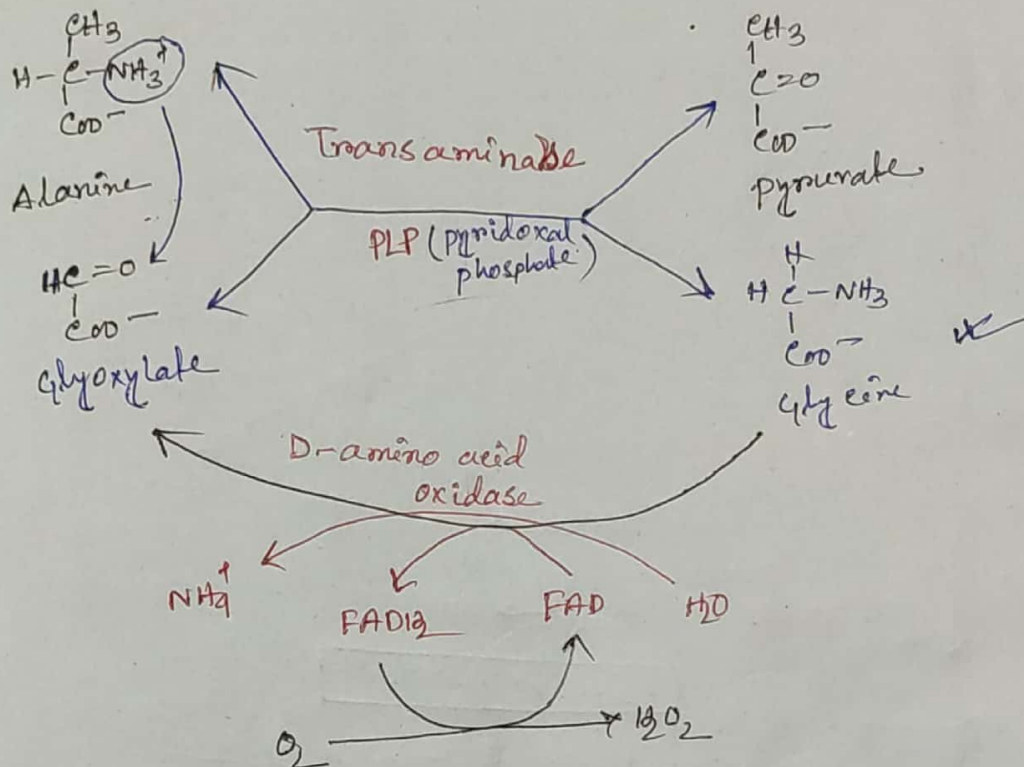 CH3
H-C-NH3+
COO-
Alanine
HC=O
COO-
Glyoxylate
Transaminase
PLP (pyridoxal
phosphate)
CH3
C=O
COO-
Pyruvate
H
H C-NH3
COO-
Glycine
D-amino acid
oxidase
NH4+
FADH2
FAD
H2O
O2
H2O2